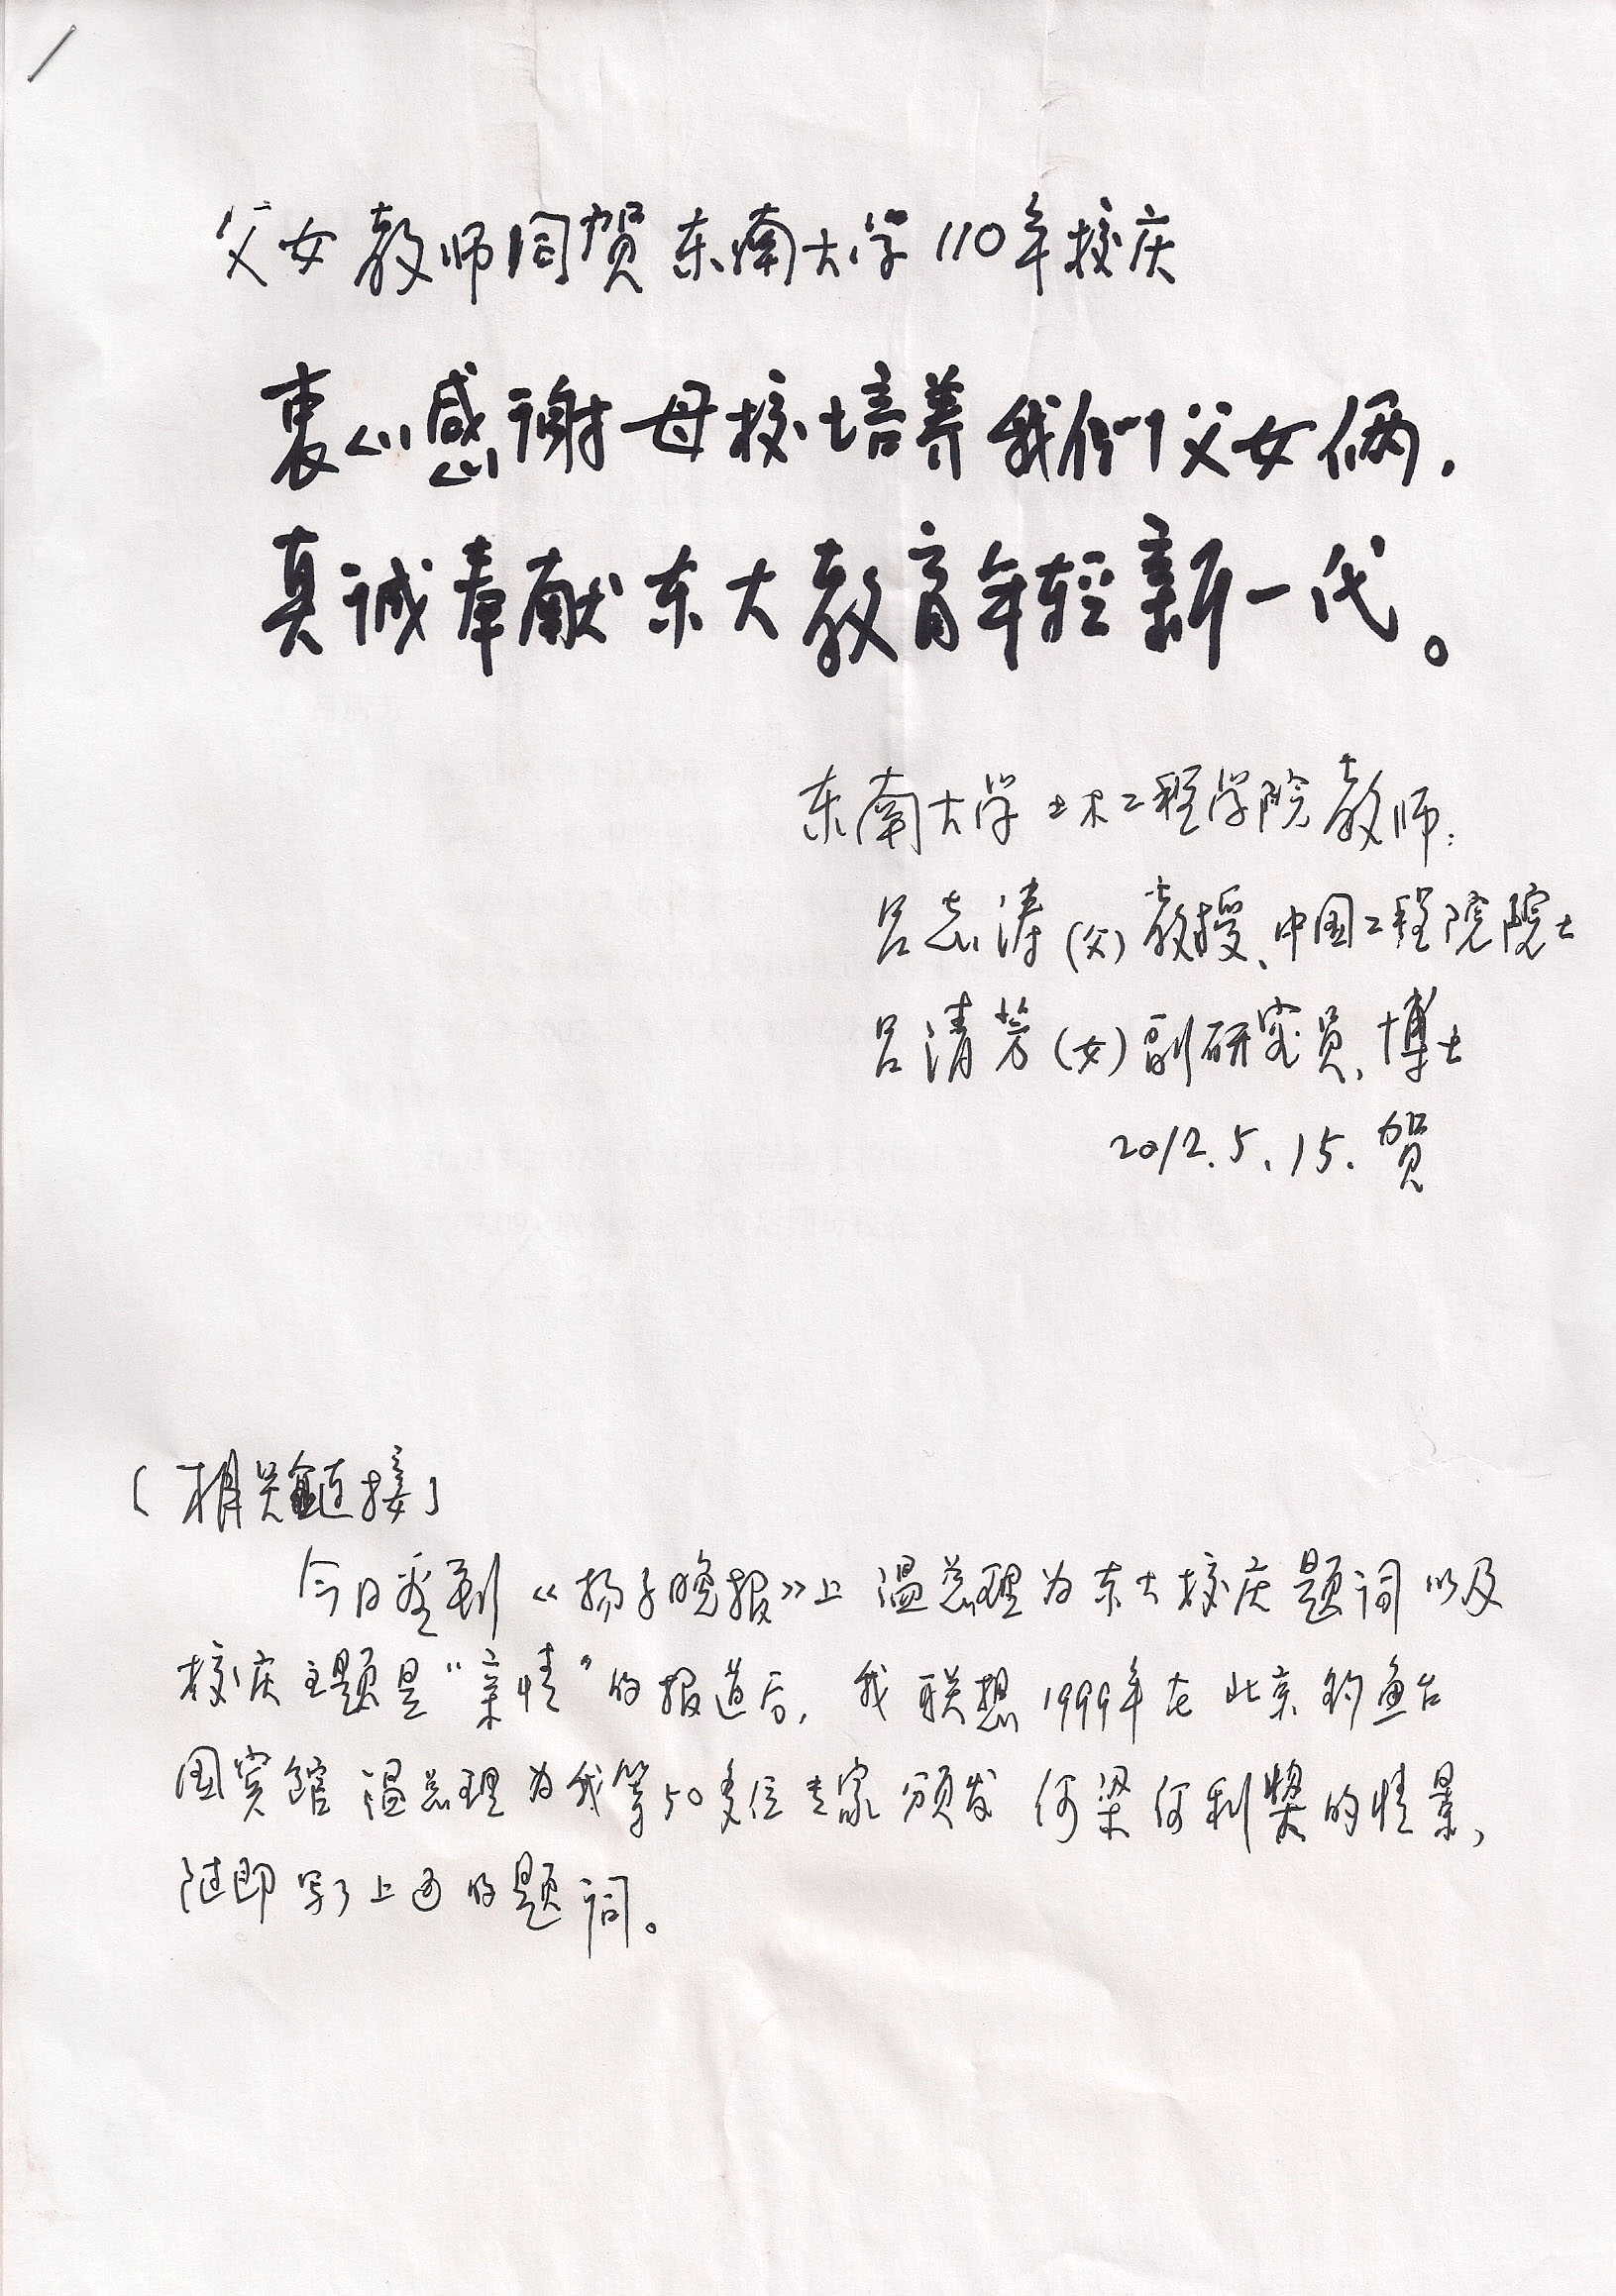 父女教师同贺东南大学110年校庆
衷心感谢母校培养我们父女俩，
真诚奉献东大教育年轻新一代。
东南大学土木工程学院教师：
吕志涛（父）教授、中国工程院院士
吕清芳（女）副研究员、博士
2012.5.15.贺
〔相关链接〕
今日看到《扬子晚报》上温总理为东大校庆题词以及
校庆主题是“亲情”的报道后，我联想1999年在北京钓鱼台
国宾馆温总理为我等50多位专家颁发何梁何利奖的情景，
随即写了上面的题词。